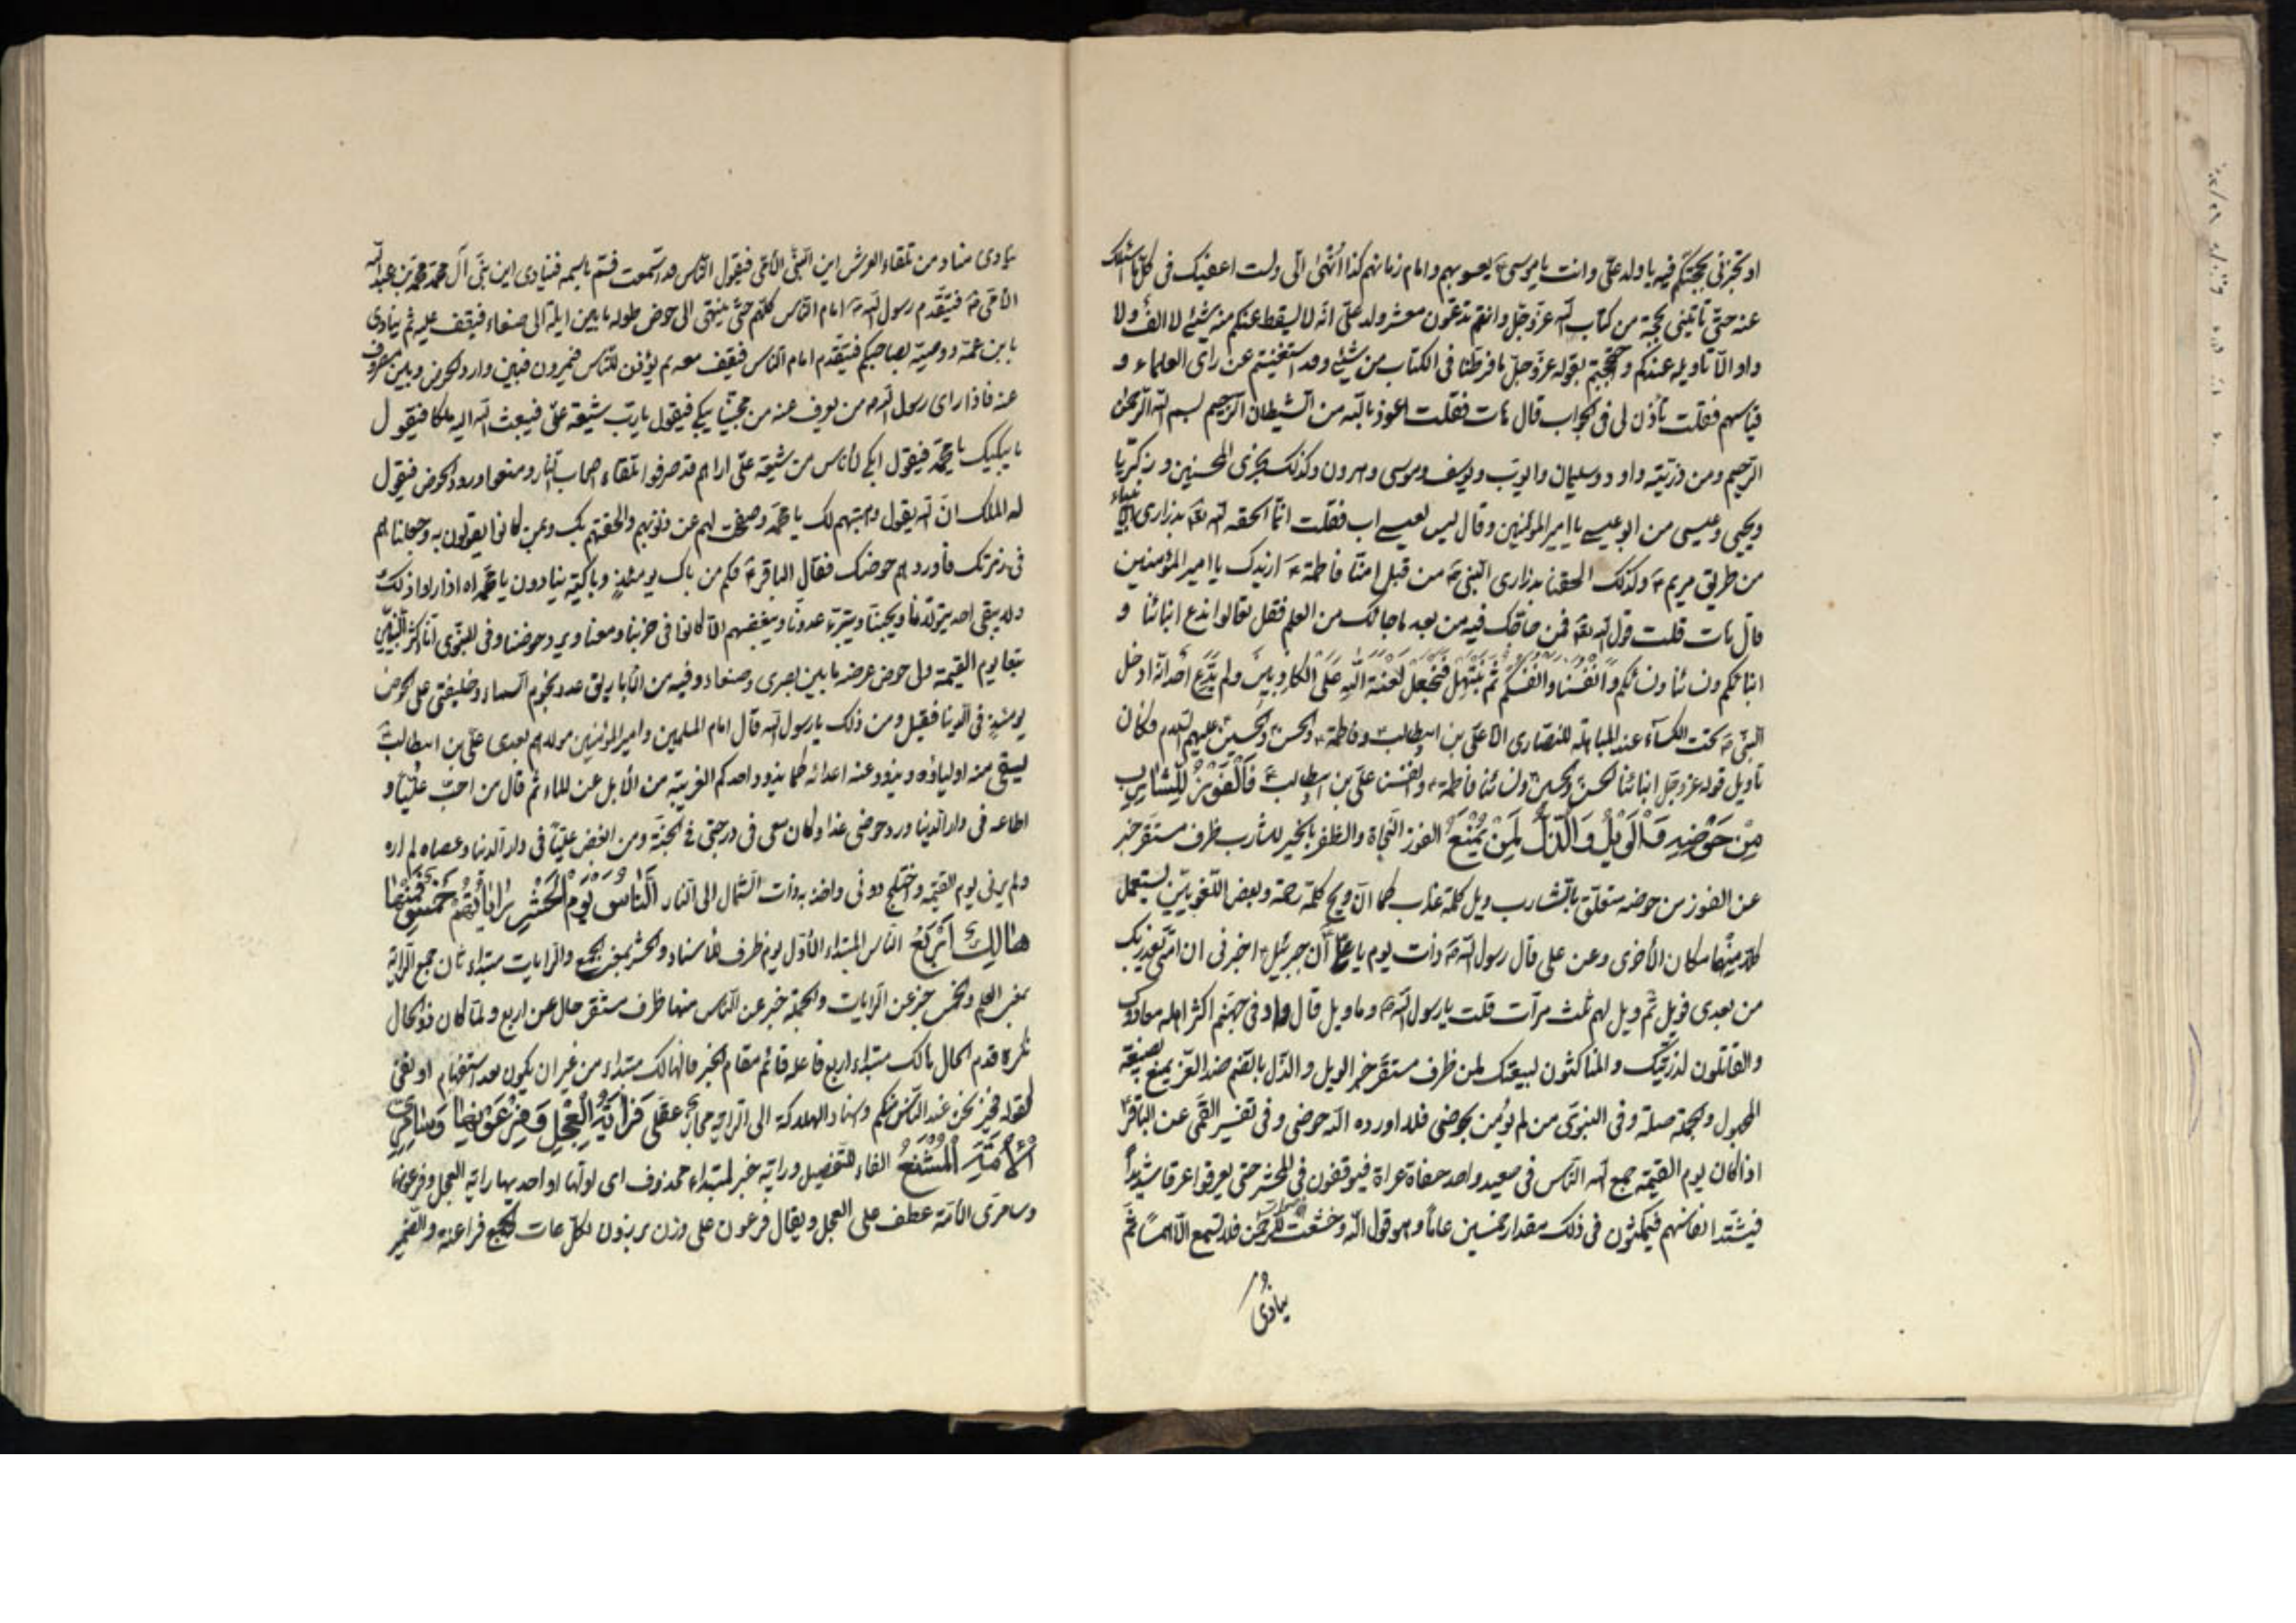 او تخبرنى بحجتكم فيه يا ولد علىّ وانت يا موسى يعسوبهم وامام زمانهم كذا انهى الىّ ولست اعفيك فى كلّ ما اسئلك
عنه حتّى تأتينى بحجّة من كتاب الله عزّ وجلّ وانتم تدّعون معشر ولد علىّ انّه لا يسقط عنكم منه شئ لا الف ولا
واو الّا تأويله عندكم واحتججتم بقوله عزّ وجلّ ما فرطنا فى الكتاب من شئ وقد استغنيتم عن راى العلماء و
قياسهم فقلت تأذن لى فى الجواب قال هات فقلت اعوذ بالله من الشيطان الرّجيم بسم الله الرّحمن
الرّحيم ومن ذرّيته داود وسليمان وايّوب ويوسف وموسى وهرون وكذلك نجزى المحسنين وزكريّا
ويحيى وعيسى من ابو عيسى يا امير المؤمنين وقال ليس لعيسى اب فقلت انّما الحقه الله تعالى بذرارى الانبياء
من طريق مريم ع وكذلك الحقنا بذرارى النّبى ص من قبل امّنا فاطمة ع ازيدك يا امير المؤمنين
قال هات قلت قول الله تع فمن حاجّك فيه من بعد ما جاءك من العلم فقل تعالوا ندع ابنائنا و
ابنائكم ونسائنا ونسائكم وانفسنا وانفسكم ثمّ نبتهل فنجعل لعنة الله على الكاذبين ولم يدّع احد انّه ادخل
النبىّ ص تحت الكسآء عند المباهلة للنصارى الّا علىّ بن ابيطالب وفاطمة والحسن والحسين عليهم السّلام وكان
تأويل قوله عزّ وجلّ ابنائنا الحسن والحسين ونسائنا فاطمة وانفسنا علىّ بن ابيطالب ع فَالْفَوْزُ لِلشّارِبِ
مِنْ حَوْضِهِ وَالْوَيْلُ وَالذُّلُّ لِمَنْ يُمْنَعُ الفوز النّجاة والظفر بالخير للشارب ظرف مستقر خبر
عن الفوز من حوضه متعلّق بالشارب ويل كلمة عذاب كما انّ ويح كلمة رحمة وبعض اللّغويّين يستعمل
كلّا منهما مكان الأخرى وعن على قال رسول الله ص ذات يوم يا علىّ انّ جبرئيل اخبرنى ان امّتى تغدر بك
من بعدى فويل ثمّ ويل لهم ثلث مرّات قلت يا رسول الله وما ويل قال واد فى جهنّم اكثر اهله معادوك
والقاتلون لذرّيّتك والناكثون لبيعتك لمن ظرف مستقرّ خبر الويل والذّل بالضّم ضدّ العزّ يمنع بصيغة
المجهول والجملة صلة وفى النبوىّ من لم يؤمن بحوضى فلا اورده الله حوضى وفى تفسير القمّى عن الباقر ع
اذا كان يوم القيمة جمع الله النّاس فى صعيد واحد حفاة عراة فيوقفون فى المحشر حتى يعرقوا عرقا شديدا
فيشتد انفاسهم فيمكثون فى ذلك مقدار خمسين عاماً وهو قول الله وخشعت الاصوات للرّحمن فلا تسمع الّا همسا ثمّ
ينادى
ينادى مناد من تلقاء العرش اين النّبىّ الامّى فيقول النّاس قد اسمعت فسمّ باسمه فينادى اين نبىّ آل محمّد محمّد بن عبد الله
الامّى ص فيتقدّم رسول الله ص امام النّاس كلّهم حتّى ينتهى الى حوض طوله ما بين ايلة الى صنعاء فيقف عليه ثم ينادى
بصاحبكم فيتقدّم امام النّاس فيقف معه ثم يؤذن للنّاس فيمرّون فبين وارد الحوض وبين مصروف
عنه فاذا راى رسول الله من يصرف عنه من محبّينا يبكى فيقول يا ربّ شيعة علىّ فيبعث الله اليه ملكا فيقول
ما يبكيك يا محمّد فيقول ابكى لأناس من شيعة علىّ اراهم قد صرفوا تلقاء اصحاب النّار ومنعوا ورود الحوض فيقول
له الملك انّ الله يقول وهبتهم لك يا محمّد وصفحت لهم عن ذنوبهم والحقتهم بك وبمن كانوا يقولون به وجعلناهم
فى زمرتك فأوردهم حوضك فقال الباقر ع فكم من باك يومئذ وباكية ينادون يا محمّداه اذا راوا ذلك
ولا يبقى احد يتولّانا ويحبّنا ويتبرّء عدوّنا ويبغضهم الّا كانوا فى حزبنا ومعنا ويرد حوضنا وفى النبوّى انا اكثر النّبيّين
تبعا يوم القيمة ولى حوض عرضه ما بين بصرى وصنعاء وفيه من الأباريق عدد نجوم السماء وخليفتى على الحوض
يومئذ فى الدّنيا فقيل ومن ذلك يا رسول الله قال امام المسلمين وامير المؤمنين مولاهم بعدى علىّ بن ابيطالب
يسقى منه اوليائه ويذود عنه اعدائه كما يذود احدكم الغريبة من الأبل عن الماء ثم قال من احبّ عليّا و
اطاعه فى دار الدّنيا ورد حوضى غدا وكان معى فى درجتى فى الجنّة ومن ابغض عليّاً فى دار الدنيا وعصاه لم اره
ولم يرنى يوم القيمة واختلج دونى واخذ به ذات الشّمال الى النّار اَلنّاسُ يَوْمَ الْحَشْرِ راياتُهُمْ خَمْسٌ فَمِنْها
هالِكٌ اَرْبَعُ النّاس المبتداء الأوّل يوم ظرف للأسناد والحشر بمعنى الجمع والرايات مبتداء ثان جمع الرّاية
بمعنى العلم والخمس خبر عن الرّايات والجملة خبر عن النّاس منها ظرف مستقر حال عن اربع ولمّا كان ذو الحال
نكرة قدم الحال هالك مبتداء اربع فاعله قائم مقام الخبر فالهالك مبتداء من غير ان يكون بعد استفهام او نفى
كقوله فخير نحن عند النّاس منكم واسناد الهلاكة الى الرّاية مجاز عقلى فَرايَةُ الْعِجْلِ وَفِرْعَوْنُها وَسامِرِىُّ
الْاُمَّةِ الْمُشْنَعُ الفاء للتفصيل وراية خبر لمبتداء محذوف اى اولها او احديها راية العجل وفرعونها
وسامرّى الامّة عطف على العجل ويقال فرعون على وزن برذون لكلّ عات والجمع فراعنة والضّمير